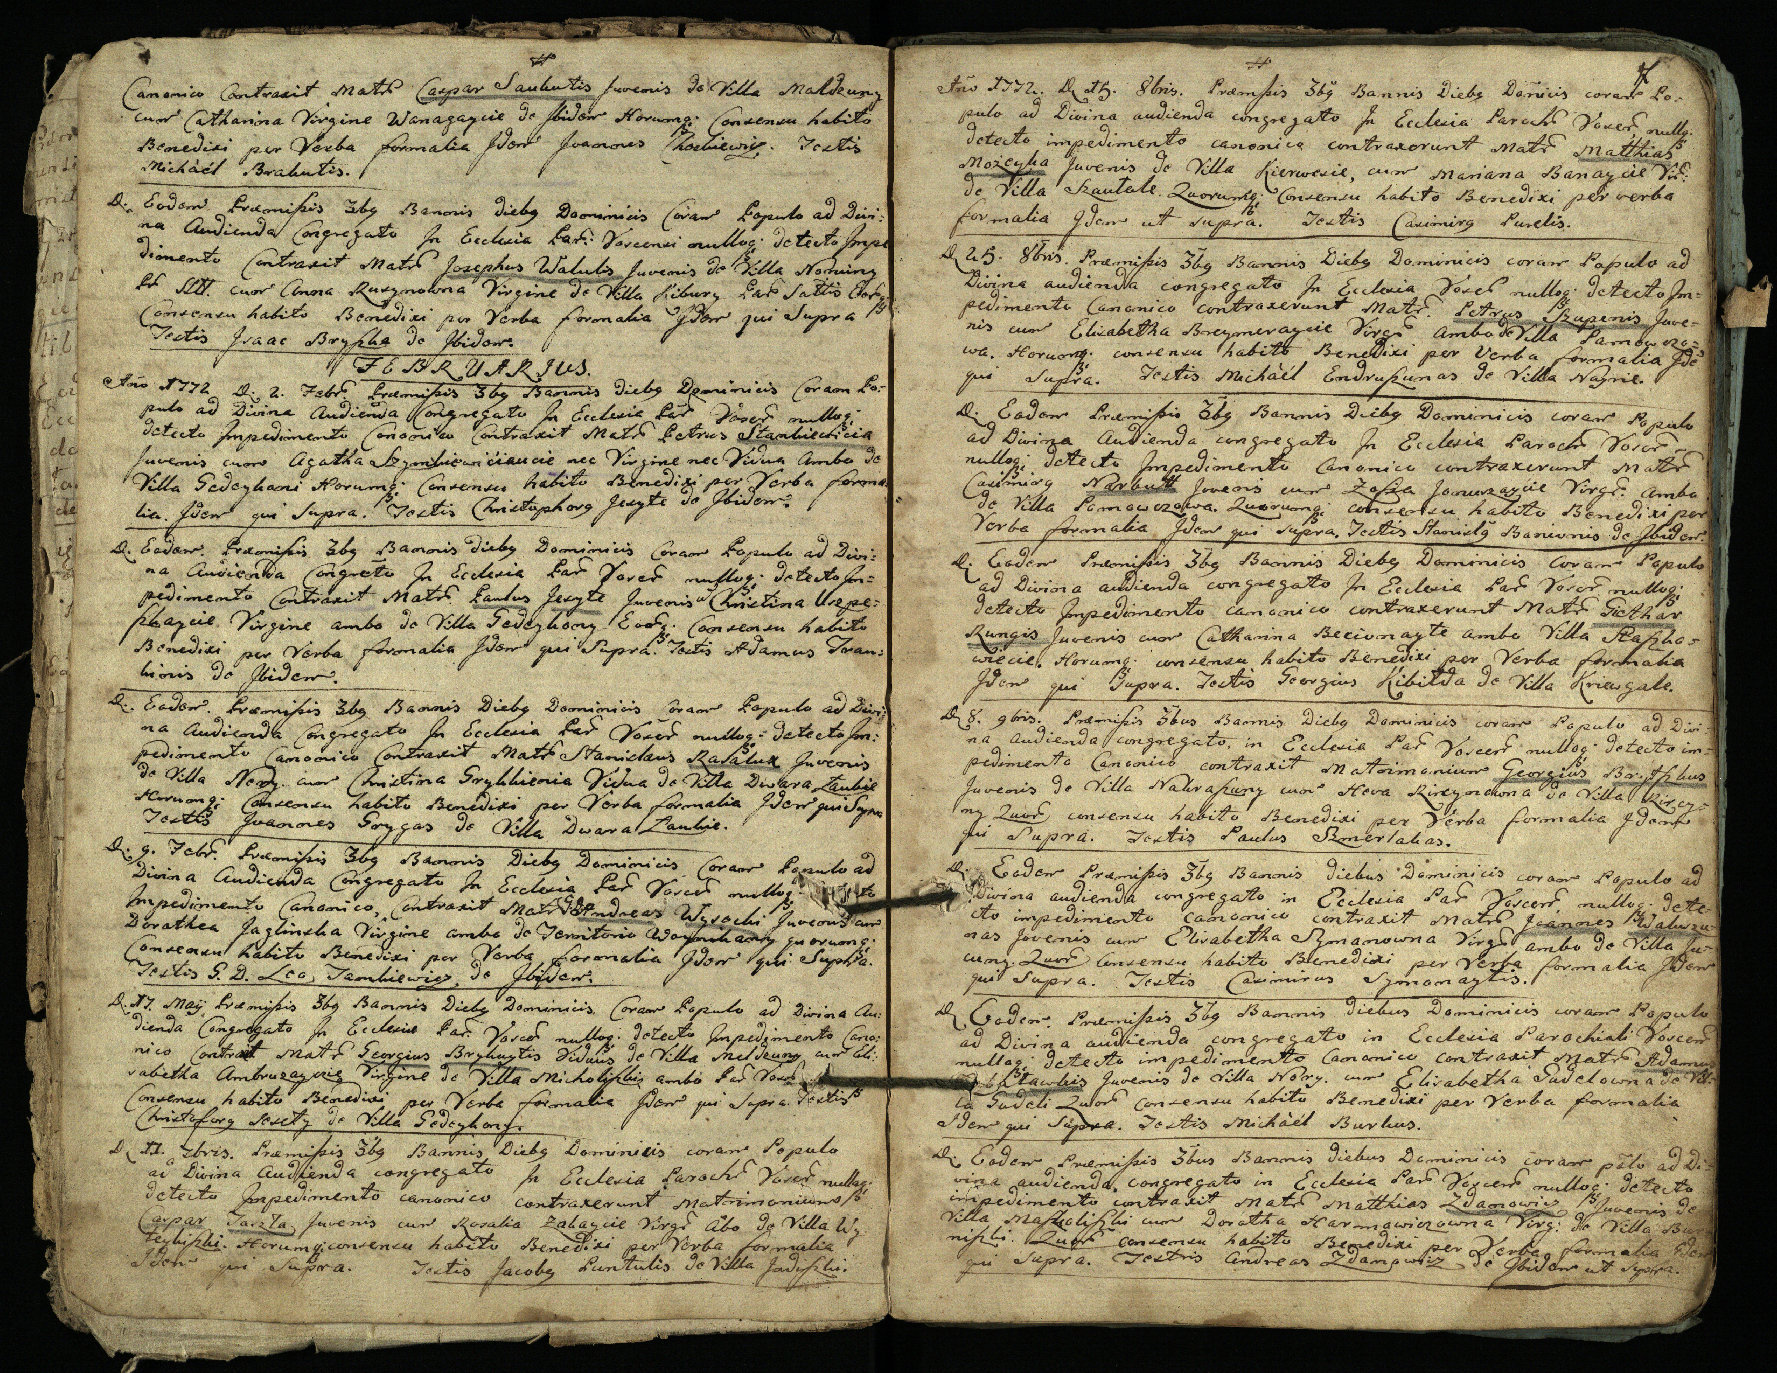 Canonico Contraxit Matr̃ Caspar Saulutis Juvenis de Villa Maldzuny
cum Catharina Virgine Wanagaycie de Ibidem Horumq; Consensu habito
Benedixi per Verba formalia Idem Joannes Testis
Michaël Bralutis.
D. Eodem Præmißis 3bg Bannis diebg Dominicis Coram Populo ad Divi-
na Audienda Congregato In Ecclesia Par: Voscensi nulloq; detecto Impe
dimento Contraxit Matr̃ Josephus Walulis Juvenis de Villa Nominy
cum Anna Ruszynowna Virgine de Villa Kibury Par
Consensu habito Benedixi per Verba formalia Idem qui Supra
Testis Isaac Bryszka de Ibidem.
FEBRUARIUS.
Año 1772 D. 2. Febr. Præmißis 3bg Bannis diebg Dominicis Coram Po-
pulo ad Divina Audienda Congregato In Ecclesia Par Voscen̄ nulloq;
detecto Impedimento Canonico Contraxit Matr̃ Petrus Stankiewicia
Juvenis cum Agatha nec Virgine nec Vidua Ambo de
Villa Gedeykani Horumq; Consensu habito Benedixi per Verba forma-
lia. Idem qui Supra. Testis Christophorg Jesyte de Ibidem.
D. Eodem. Præmißis 3bg Bannis diebg Dominicis Coram Populo ad Divi-
na Audienda Congreto In Ecclesia Par Voscen̄ nulloq; detecto Im-
pedimento Contraxit Matr̃ Paulus Jesyte Juvenis Christina Urzpe-
Virgine ambo de Villa Gedeykony Consensu habito
Benedixi per Verba formalia Idem qui Supra. Testis Adamus Traw-
kinis de Ibidem.
D. Eodem. Præmißis 3bg Bannis Diebg Dominicis Coram Populo ad Divi-
na Audienda Congregato In Ecclesia Par Voscen̄ nulloq; detecto Im-
pedimento Canonico Contraxit Matr̃ Stanislaus Juvenis
de Villa cum Christina Vidua de Villa Dwara Laukie
Horumq; Consensu habito Benedixi per Verba formalia Idem qui Supra
Testis Joannes Grygas de Villa Dwara Laukie.
D. 9. Febr. Præmißis 3bg Bannis Diebg Dominicis Coram Populo ad
Divina Audienda Congregato In Ecclesia Par Voscen̄ nulloq;
Impedimento Canonico, Contraxit Matr̃ Andreas Wysocki Juvenis cum
Dorothea Jaglinska Virgine ambo de Territorio quorumq;
Consensu habito Benedixi per Verba formalia Idem qui Supra.
Testis G. D. Leo Jankiewicz de Ibidem.
D. 17. Maij Præmißis 3bg Bannis Diebg Dominicis Coram Populo ad Divina Au-
dienda Congregato In Ecclesia Par Voscen̄ nulloq; detecto Impedimento Cano-
nico Contraxit Matr̃ Georgius Viduus de Villa Meldzuny cum Eli-
sabetha Ambruzaycie Virgine de Villa Micholiszki ambo Par
Consensu habito Benedixi per Verba formalia Idem qui Supra. Testis
Christoforg Jesyty de Villa Gedeykony.
D. 11. 7bris. Præmißis 3bg Bannis Diebg Dominicis coram Populo
ad Divina Audienda congregato In Ecclesia Paroch̄ Voscen̄ nulloq;
detecto Impedimento canonico contraxerunt Matrimonium
Caspar Tarzta Juvenis cum Rosalia Virg̃ abo de Villa
Horumq; consensu habito Benedixi per Verba formalia
Idem qui Supra. Testis Jacobg Puntulis de Villa
7
Año 1772. D. 15. 8bris. Præmißis 3bg Bannis Diebg Dom̄icis coram Po-
pulo ad Divina audienda congregato In Ecclesia Paroch̄ Voscen̄ nulloq;
detecto impedimento canonico contraxerunt Matr̃ Matthias
Mozeyka Juvenis de Villa cum Mariana Banaycie Vir:
de Villa Szautele. Quorumq; Consensu habito Benedixi per verba
formalia Idem ut supra. Testis Casimirg Purelis.
D. 25. 8bris. Præmißis 3bg Bannis Diebg Dominicis coram Populo ad
Divina audienda congregato In Ecclesia Voscen̄ nulloq; detecto Im-
pedimento Canonico contraxerunt Matr̃. Petrus Juve-
nis cum Elisabetha Breymeraycie Virg̃ Ambo de Villa
wa. Horumq; consensu habito Benedixi per Verba formalia Idē
qui Supra. Testis Michaël Endrußunas de Villa
D. Eodem Præmißis 3bg Bannis Diebg Dominicis coram Populo
ad Divina Audienda congregato In Ecclesia Paroch̄ Voscen̄
nulloq; detecto Impedimento Canonico contraxerunt Matr̃
Casimirg Narbutt Juvenis cum Zofia Januszaycie Virg̃. ambo
de Villa Quorumq; consensu habito Benedixi per
Verba formalia Idem qui supra. Testis Stanislg Banionis de Ibidem
D. Eodem Præmißis 3bg Bannis Diebg Dominicis Coram Populo
ad Divina audienda congregato In Ecclesia Par Voscen̄ nulloq;
detecto Impedimento canonico contraxerunt Matr̃
Rungis Juvenis cum Catharina ambo Villa
Horumq; consensu habito Benedixi per Verba formalia
Idem qui Supra. Testis Georgius Kibilda de Villa Kriewgale.
D. 8. 9bris. Præmißis 3bus Bannis Diebg Dominicis coram Populo ad Divi-
na audienda congregato in Ecclesia Par Voscen̄ nulloq; detecto im-
pedimento Canonico contraxit Matrimonium Georgius
Juvenis de Villa cum Heva de Villa
ny Quor̃ consensu habito Benedixi per Verba formalia Idem
qui Supra. Testis Paulus
D. Eodem Præmißis 3bg Bannis diebus Dominicis coram Populo ad
Divina audienda congregato in Ecclesia Par Voscen̄ nulloq; dete-
cto impedimento canonico contraxit Matr̃ Joannes
nas Juvenis cum Elisabetha Szymanowna Virg̃ ambo de Villa Ju-
cuny. Quor̃ Consensu habito Benedixi per Verba formalia Idem
qui Supra. Testis Casimirus Szymanaytis.
D. Eodem. Præmißis 3bg Bannis diebus Dominicis coram Populo
ad Divina audienda congregato in Ecclesia Parochiali Voscen̄
nulloq; detecto impedimento Canonico contraxit Matr̃ Adamus
Juvenis de Villa Nory. cum Elisabetha Gudelowna de Vil-
la Gudeli Quor̃ Consensu habito Benedixi per Verba formalia
Idem qui Supra. Testis Michäel Burkus.
D. Eodem Præmißis 3bus Bannis diebus Dominicis coram pālo ad Di-
vina audienda, congregato in Ecclesia Par Voscen̄ nulloq; detecto
impedimento contraxit Matr̃ Matthias Zdanowicz Juvenis de
Villa cum Dorotha Harmanowiczowna Virg: de Villa
Quor̃ consensu habito Benedixi per Verba formalia Idem
qui Supra. Testis Andreas Zdanowicz de Ibidem ut Supra.